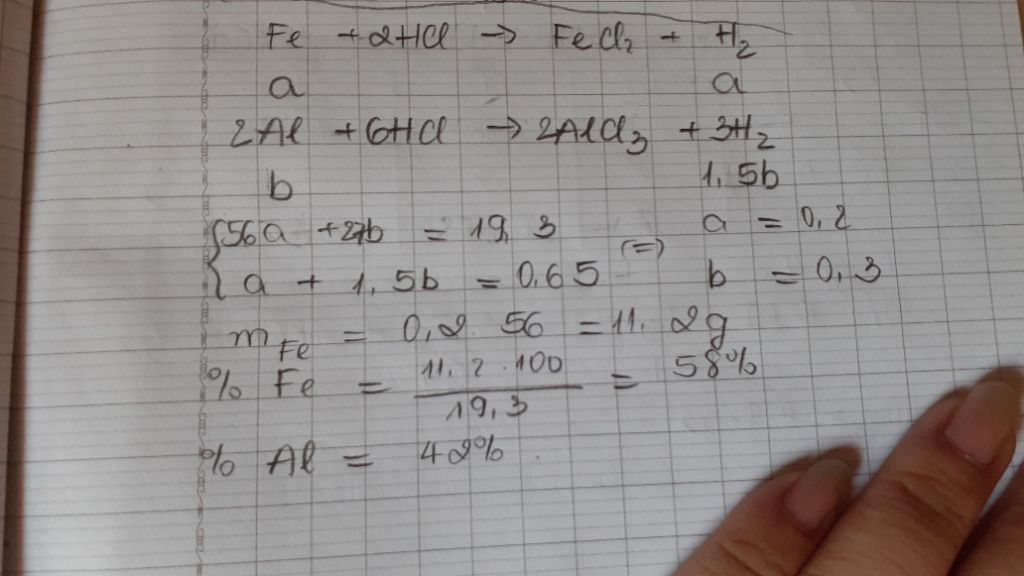 Fe + 2HCl → FeCl2 + H2
a a
2Al + 6HCl → 2AlCl3 + 3H2
b 1,5b
{56a + 27b = 19,3 a = 0,2
{a + 1,5b = 0,65 (=) b = 0,3
mFe = 0,2. 56 = 11,2g
% Fe = 11,2.100 / 19,3 = 58%
% Al = 42%.